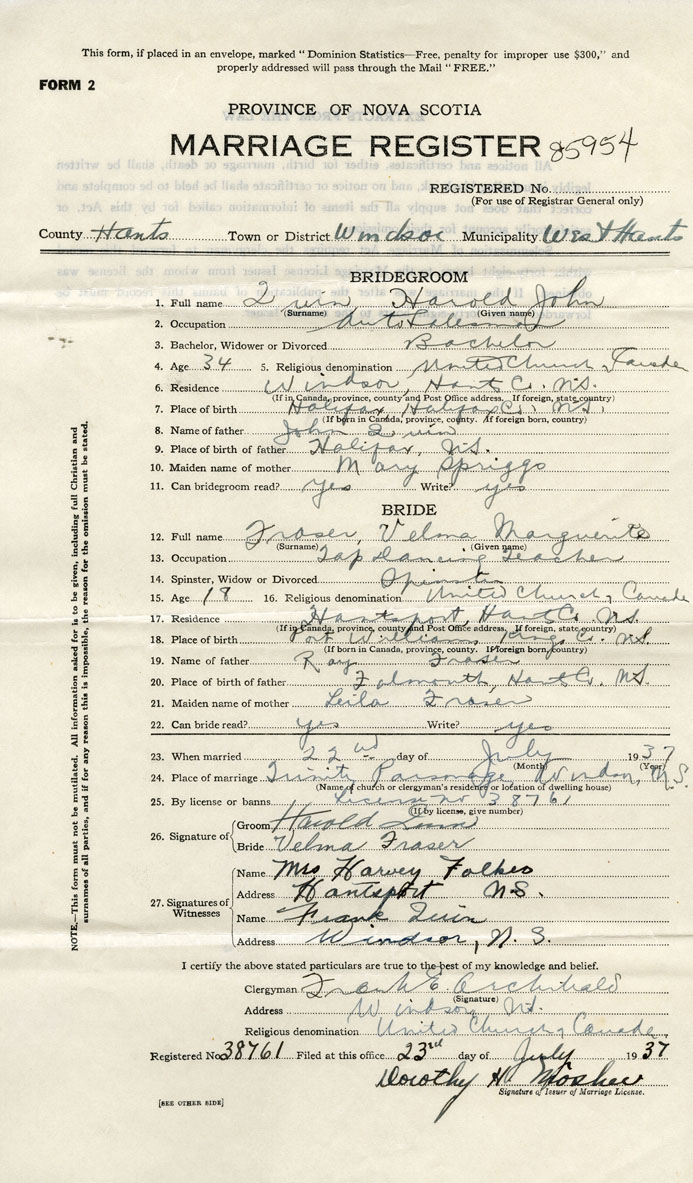 This form, if placed in an envelope, marked "Dominion Statistics—Free, penalty for improper use $300," and
properly addressed will pass through the Mail "FREE."
FORM 2
PROVINCE OF NOVA SCOTIA
MARRIAGE REGISTER 85954
REGISTERED No.
(For use of Registrar General only)
County Hants Town or District Windsor Municipality West Hants
BRIDEGROOM
1. Full name Quin Harold John
(Surname) (Given name)
2. Occupation Auto Salesman
3. Bachelor, Widower or Divorced Bachelor
4. Age 34 5. Religious denomination United Church, Canada
6. Residence Windsor, Hants Co. N.S.
(If in Canada, province, county and Post Office address. If foreign, state country)
7. Place of birth Halifax, Halifax Co. N.S.
(If born in Canada, province, county. If foreign born, country)
8. Name of father John Quin
9. Place of birth of father Halifax, N.S.
10. Maiden name of mother Mary Spriggs
11. Can bridegroom read? yes Write? yes
BRIDE
12. Full name Fraser, Velma Marguerite
(Surname) (Given name)
13. Occupation Tap Dancing Teacher
14. Spinster, Widow or Divorced Spinster
15. Age 18 16. Religious denomination United Church, Canada
17. Residence Hantsport, Hants Co. N.S.
(If in Canada, province, county and Post Office address. If foreign, state country)
18. Place of birth Port Williams, Kings Co. N.S.
(If born in Canada, province, county. If foreign born, country)
19. Name of father Ray Fraser
20. Place of birth of father Falmouth, Hants Co. N.S.
21. Maiden name of mother Leila Fraser
22. Can bride read? yes Write? yes
23. When married 22nd day of July 1937
(Month) (Year)
24. Place of marriage Trinity Parsonage, Windsor, N.S.
(Name of church or clergyman's residence or location of dwelling house)
25. By license or banns License no 38761
(If by license, give number)
26. Signature of Groom Harold Quin
Bride Velma Fraser
27. Signatures of Witnesses
Name Mrs Harvey Folker
Address Hantsport N.S.
Name Frank Quin
Address Windsor, N.S.
I certify the above stated particulars are true to the best of my knowledge and belief.
Clergyman Frank E. Archibald
(Signature)
Address Windsor N.S.
Religious denomination United Church, Canada
Registered No 38761 Filed at this office 23rd day of July 1937
Dorothy H Mosher
Signature of Issuer of Marriage License.
[SEE OTHER SIDE]
NOTE.—This form must not be mutilated. All information asked for is to be given, including full Christian and
surnames of all parties, and if for any reason this is impossible, the reason for the omission must be stated.